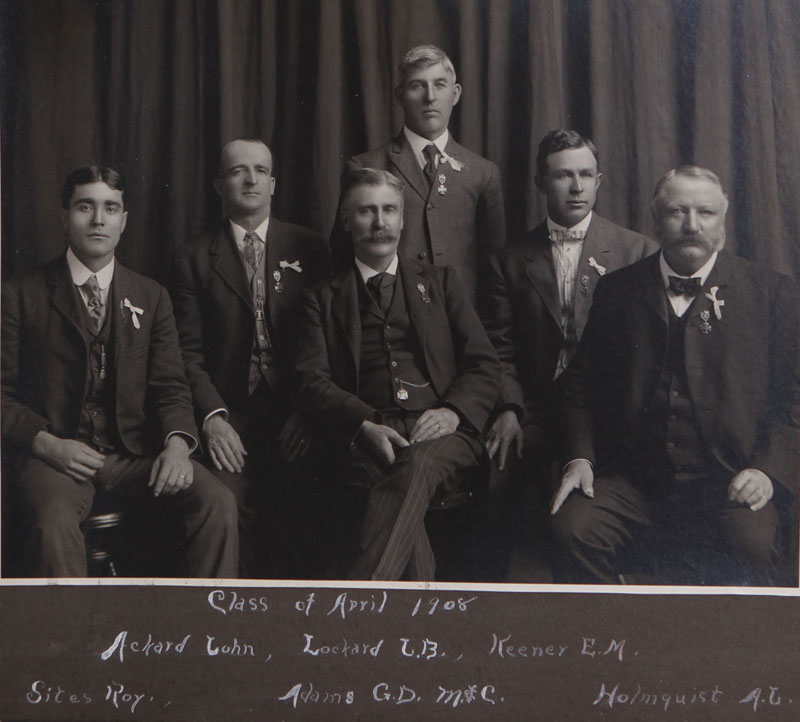 Class of April 1908
Ackard John, Lockard J.B., Keener E.M.
Sites Roy., Adams G.D. M.&C. Holmquist A.J.